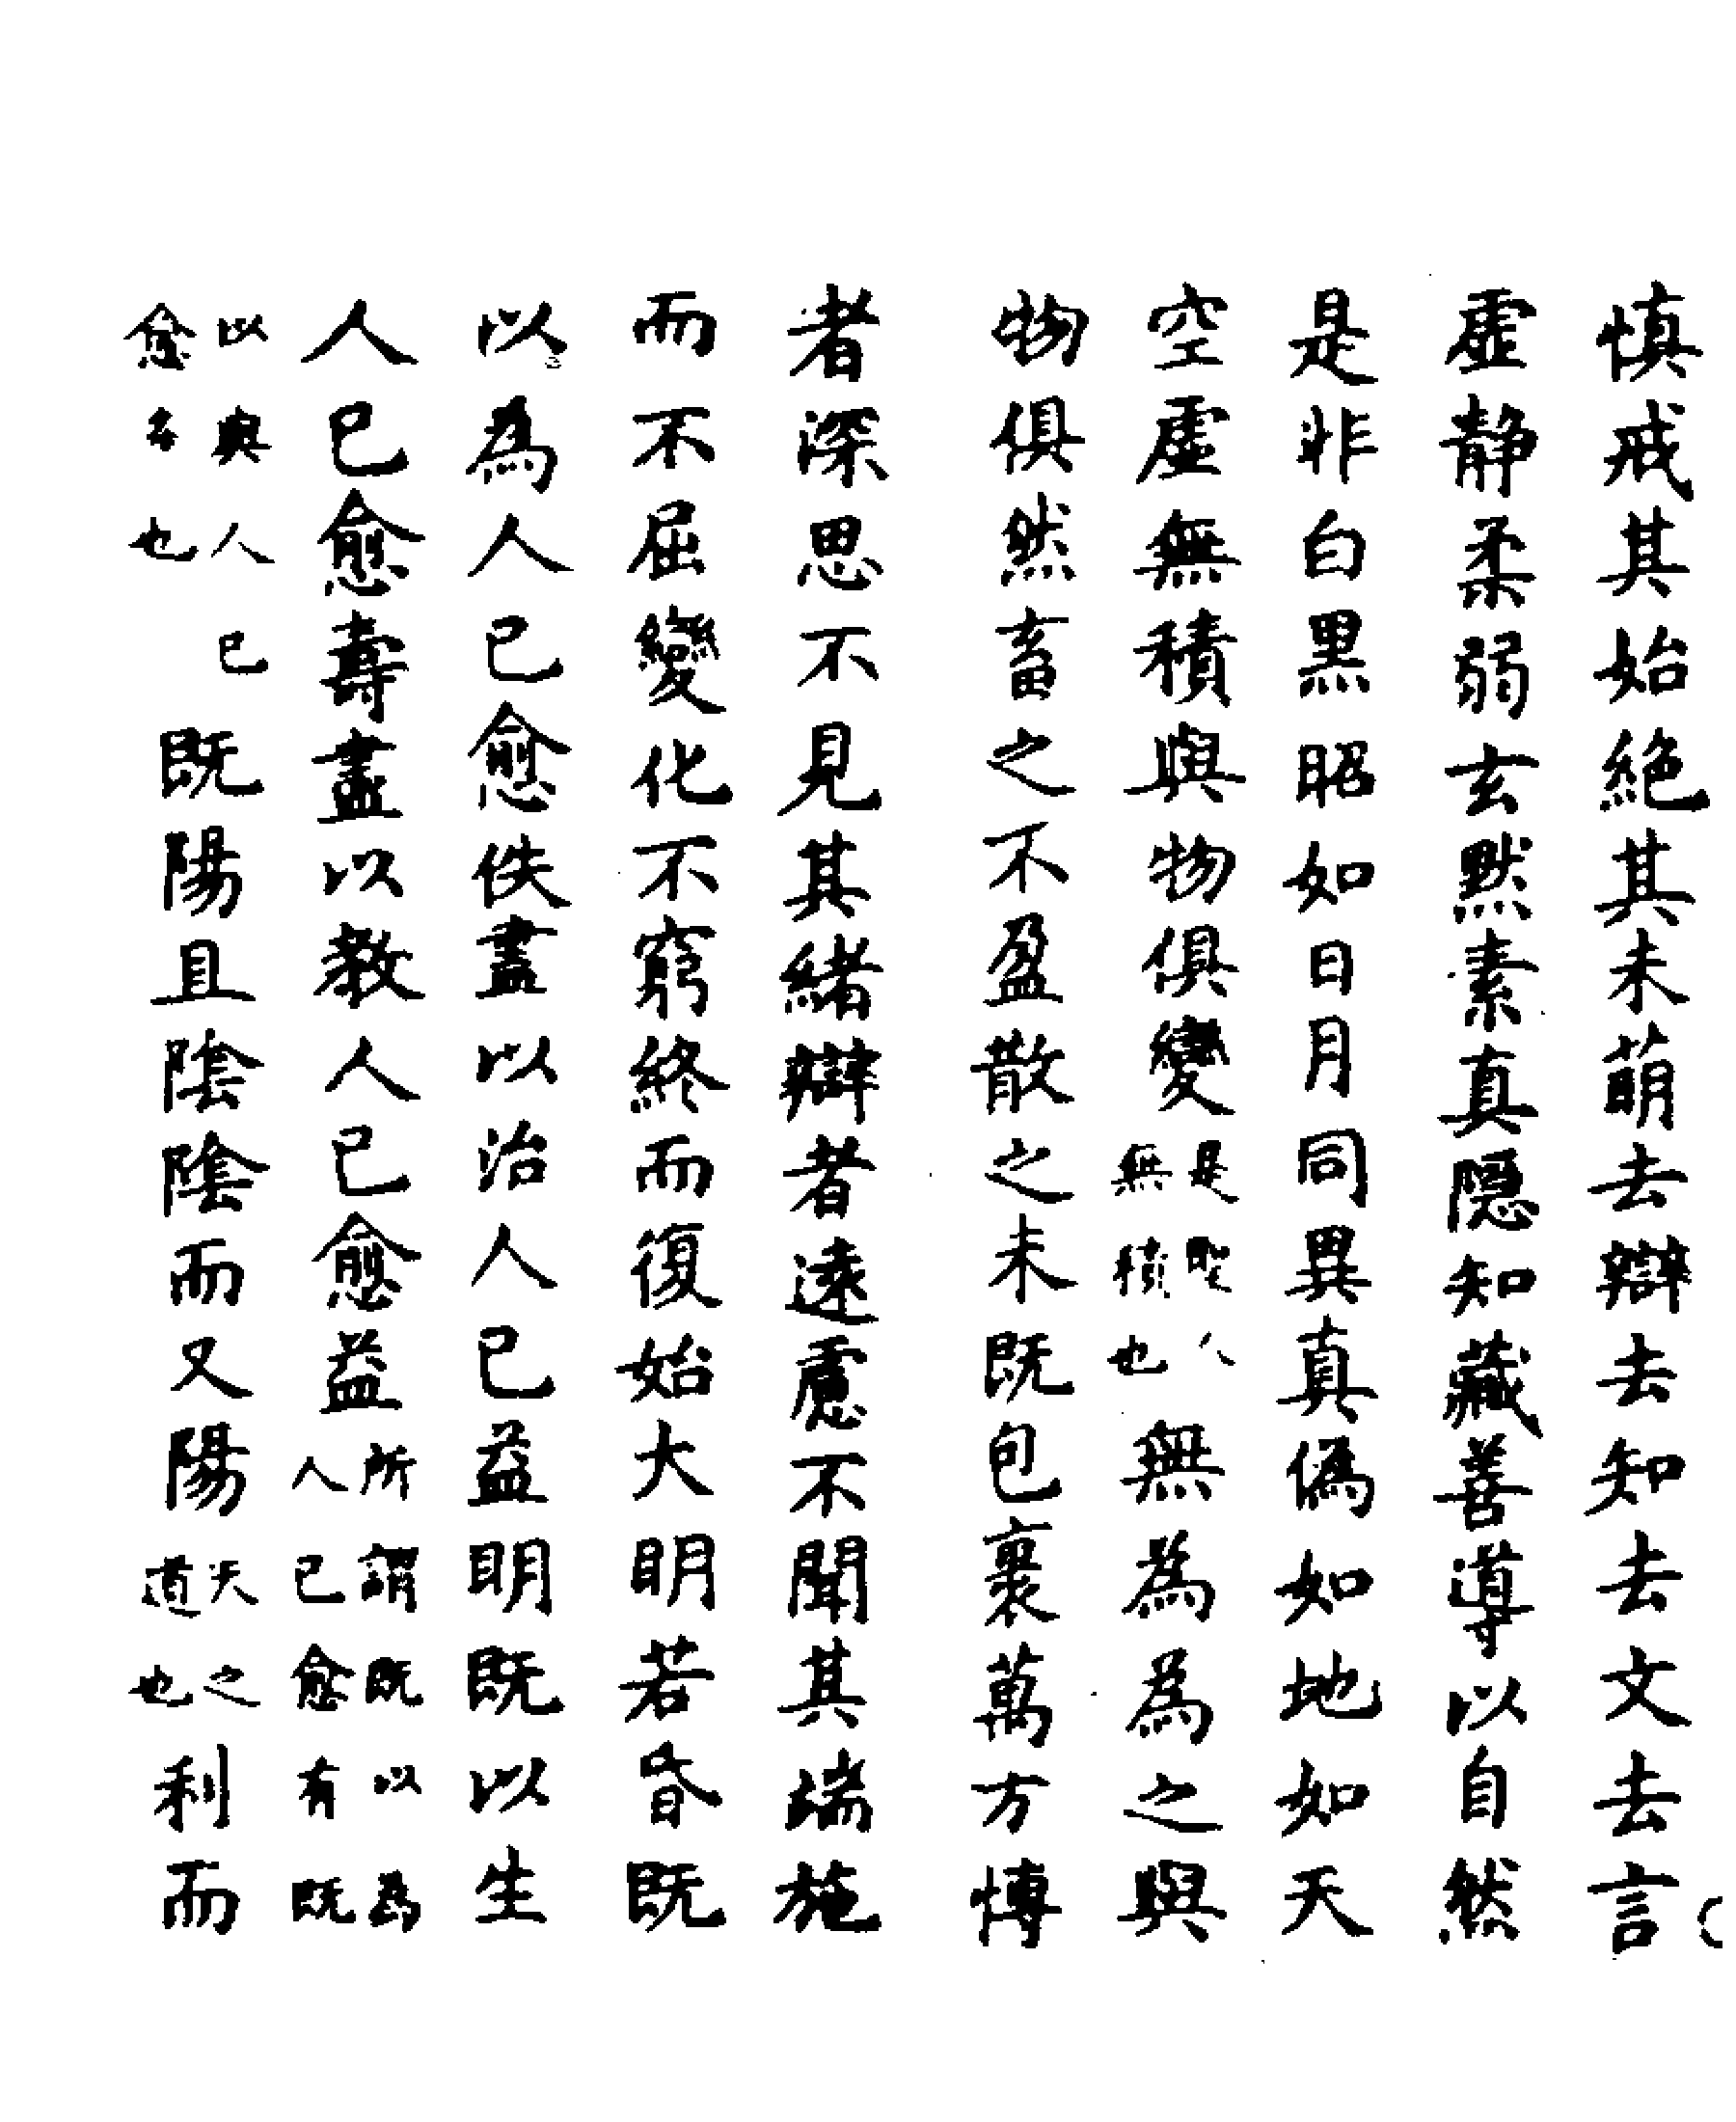 慎戒其始絶其未萌去辯去知去文去言
虛静柔弱玄黙素真隱知藏善導以自然
是非白黒昭如日月同異真偽如地如天
空虛無積與物俱變是聖人無積也無為為之與
物俱然畜之不盈散之未既包裹萬方博
者深思不見其緒辯者逺慮不聞其端施
而不屈變化不窮終而復始大明若昏既
以為人已愈佚盡以治人已益明既以生
人已愈壽盡以教人已愈益所謂既以為人已愈有既
以與人已愈多也既陽且隂隂而又陽天之道也利而